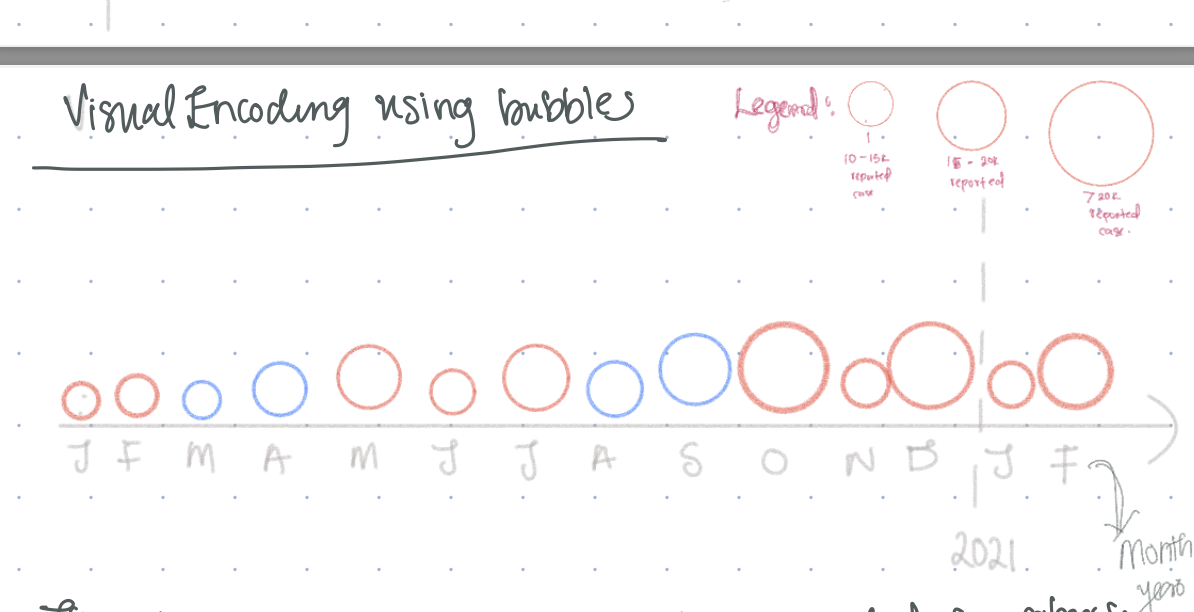 Visual Encoding using bubbles
Legend:
10-15k
reported
case
15 - 20k
reported
>20k
reported
case.
J F M A M J J A S O N D J F
2021
Month
years